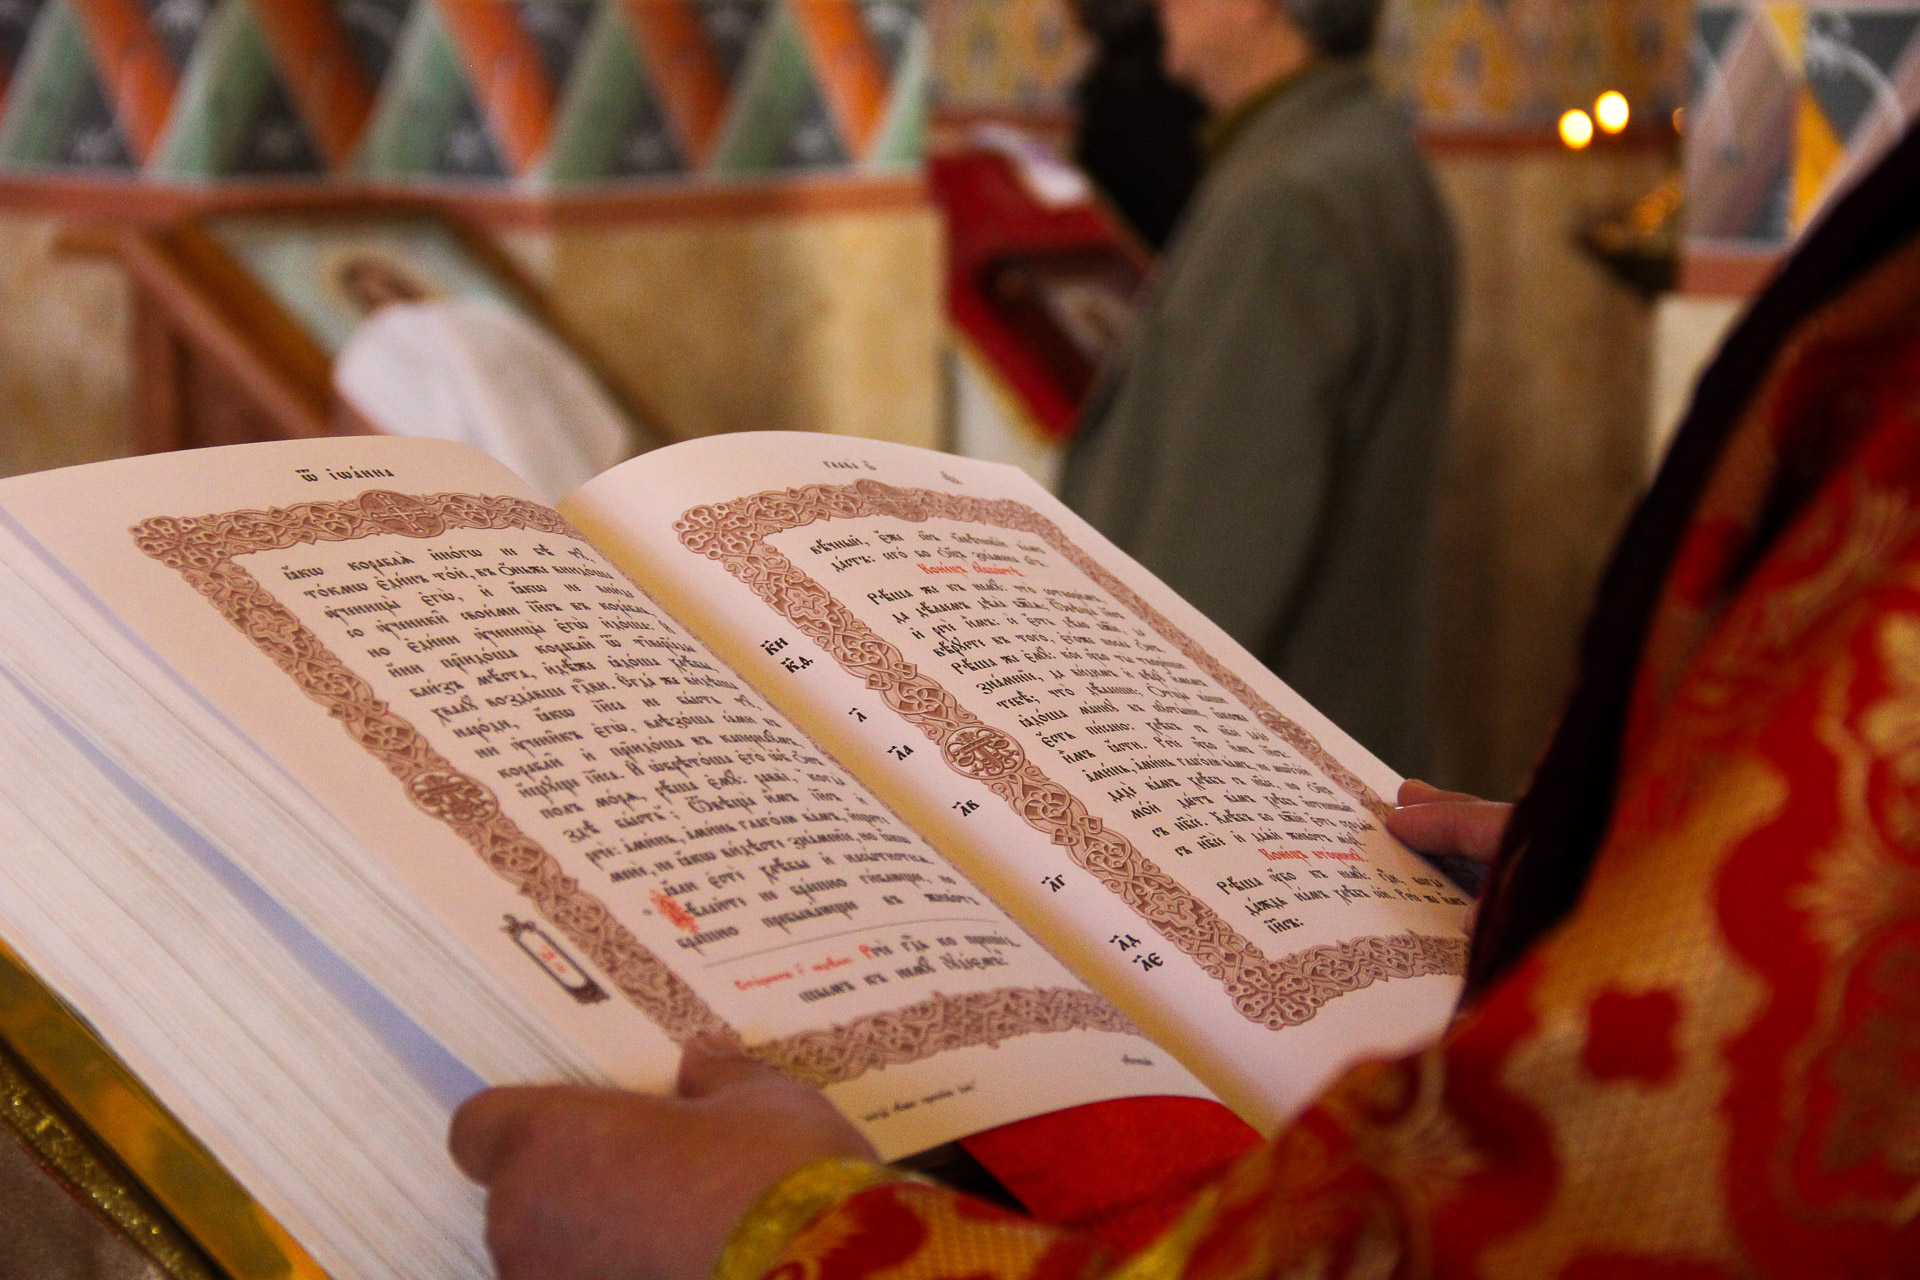 Ѿ ІѠА́ННА
ꙗ́кѡ кораблѧ̀ и҆но́гѡ не бѣ̀ тꙋ̀,
то́кмѡ є҆ди́нъ то́й, въ ѻ҆́ньже внидо́ша
ᲂу҆чн҃цы̀ є҆гѡ̀, и҆ ꙗ́кѡ не вни́де
со ᲂу҆чн҃ки̑ свои́ми і҆и҃съ въ кора́бль,
но є҆ди́ни ᲂу҆чн҃цы̀ є҆гѡ̀ и҆до́ша: И҆
и҆ні́и прїидо́ша корабли̑ ѿ тїверїа́ды
бли́зъ мѣ́ста, и҆дѣ́же ꙗ҆до́ша хлѣ́бы,
хвалꙋ̀ возда́вше гдⷭ҇еви. Є҆гда́ же ви́дѣша
наро́ди, ꙗ́кѡ і҆и҃са не бы́сть тꙋ̀,
ни ᲂу҆чн҃къ є҆гѡ̀, влѣзо́ша са́ми въ
корабли̑ и҆ прїидо́ша въ капернаꙋ́мъ,
и҆́щꙋще і҆и҃са. И҆ ѡ҆брѣ́тше є҆го̀ ѡ҆б̾ ѻ҆́нъ
по́лъ мо́рѧ, рѣ́ша є҆мꙋ̀: равві̀, когда̀
здѣ̀ бы́сть; Ѿвѣща̀ и҆̀мъ і҆и҃съ и҆
речѐ: а҆ми́нь, а҆ми́нь гл҃ю ва́мъ, и҆́щете
менѐ, не ꙗ́кѡ ви́дѣсте зна́менїе, но ꙗ́кѡ
ꙗ́ли є҆стѐ хлѣ́бы и҆ насы́тистесѧ.
Дѣ́лайте не бра́шно ги́блющее, но
бра́шно пребыва́ющее въ живо́тъ
Речѐ гдⷭ҇ь ко прише́д
шымъ къ немꙋ̀ і҆ꙋде́ємъ:
вѣ́чный
ГЛАВА̀ Ѕ҃
вѣ́чный, є҆́же сн҃ъ чл҃вѣ́ческїй ва́мъ
да́стъ: сего́ бо ѻ҆ц҃ъ зна́мена бг҃ъ.
Коне́цъ сꙋббѡ́тѣ.
Рѣ́ша же къ немꙋ̀: что̀ сотвори́мъ,
да дѣ́лаемъ дѣла̀ бж҃їѧ; Ѿвѣща̀ і҆и҃съ
и҆ речѐ и҆̀мъ: сѐ є҆́сть дѣ́ло бж҃їе, да
вѣ́рꙋете въ того̀, є҆го́же посла̀ ѻ҆́нъ.
Рѣ́ша же є҆мꙋ̀: ко́е ᲂу҆̀бо ты̀ твори́ши
зна́менїе, да ви́димъ и҆ вѣ́рꙋ и҆́мемъ
тебѣ̀; что̀ дѣ́лаеши; Ѻ҆тцы̀ на́ши
ꙗ҆до́ша ма́ннꙋ въ пꙋсты́ни, ꙗ́коже
є҆́сть пи́сано: хлѣ́бъ съ нб҃сѐ дадѐ
и҆̀мъ ꙗ҆́сти. Речѐ ᲂу҆̀бо и҆̀мъ і҆и҃съ:
а҆ми́нь, а҆ми́нь гл҃ю ва́мъ, не мѡѷсе́й
дадѐ ва́мъ хлѣ́бъ съ нб҃сѐ, но ѻ҆ц҃ъ
мо́й дае́тъ ва́мъ хлѣ́бъ и҆́стинный
съ нб҃сѐ. Хлѣ́бъ бо бж҃їй є҆́сть сходѧ́й
съ нб҃сѐ и҆ даѧ́й живо́тъ мі́рꙋ.
Коне́цъ вто́рникꙋ.
Рѣ́ша ᲂу҆̀бо къ немꙋ̀: гдⷭ҇и, всегда̀
да́ждь на́мъ хлѣ́бъ се́й. Рече́ же и҆̀мъ
і҆и҃съ:
к҃и
к҃ѳ
л҃
л҃а
л҃в
л҃г
л҃д
л҃є